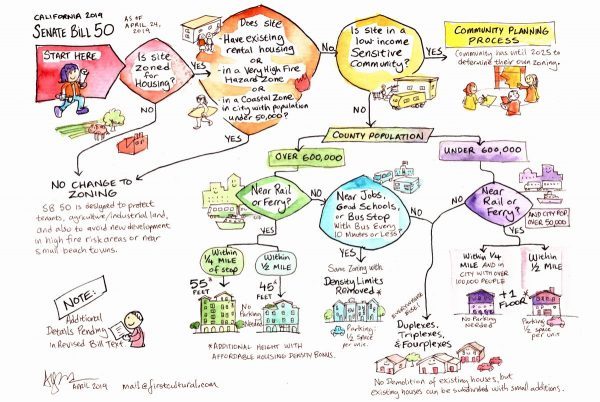 CALIFORNIA 2019
SENATE BILL 50
AS OF
APRIL 24,
2019
START HERE
Is site
zoned
for
Housing?
YES
NO
Does site
- Have existing
rental housing
OR
- in a Very High Fire
Hazard Zone
OR
- in a Coastal Zone
in city with population
under 50,000?
No
YES
Is site in a
low income
Sensitive
Community?
YES
NO
COMMUNITY PLANNING
PROCESS
Community has until 2025 to
determine their own zoning.
NO CHANGE TO
ZONING
SB 50 is designed to protect
tenants, agriculture/industrial land,
and also to avoid new development
in high fire risk areas or near
small beach towns.
COUNTY POPULATION
OVER 600,000
UNDER 600,000
Near Rail
or Ferry?
NO
YES
Near Jobs,
Good Schools,
or Bus Stop
With Bus Every
10 Minutes or Less?
NO
YES
Near
Rail or
Ferry?
NO
AND CITY POP.
over 50,000
YES
Within 1/4
MILE
of stop
Within
1/2 MILE
55*
FEET
45*
FEET
No
Parking
Needed
*ADDITIONAL HEIGHT WITH
AFFORDABLE HOUSING DENSITY BONUS.
Same Zoning with
Density Limits
Removed*
Parking:
1/2 Space
per unit.
EVERYWHERE
ELSE:
Duplexes,
Triplexes, &
Fourplexes
No Demolition of existing houses, but
existing houses can be subdivided with small additions.
Within 1/4
MILE AND in
CITY WITH OVER
100,000 PEOPLE
Within
1/2 MILE
+1
FLOOR*
No Parking
Needed
Parking:
1/2 space
per unit
NOTE:
Additional
Details Pending
in Revised Bill Text.
APRIL 2019
mail@firstcultural.com